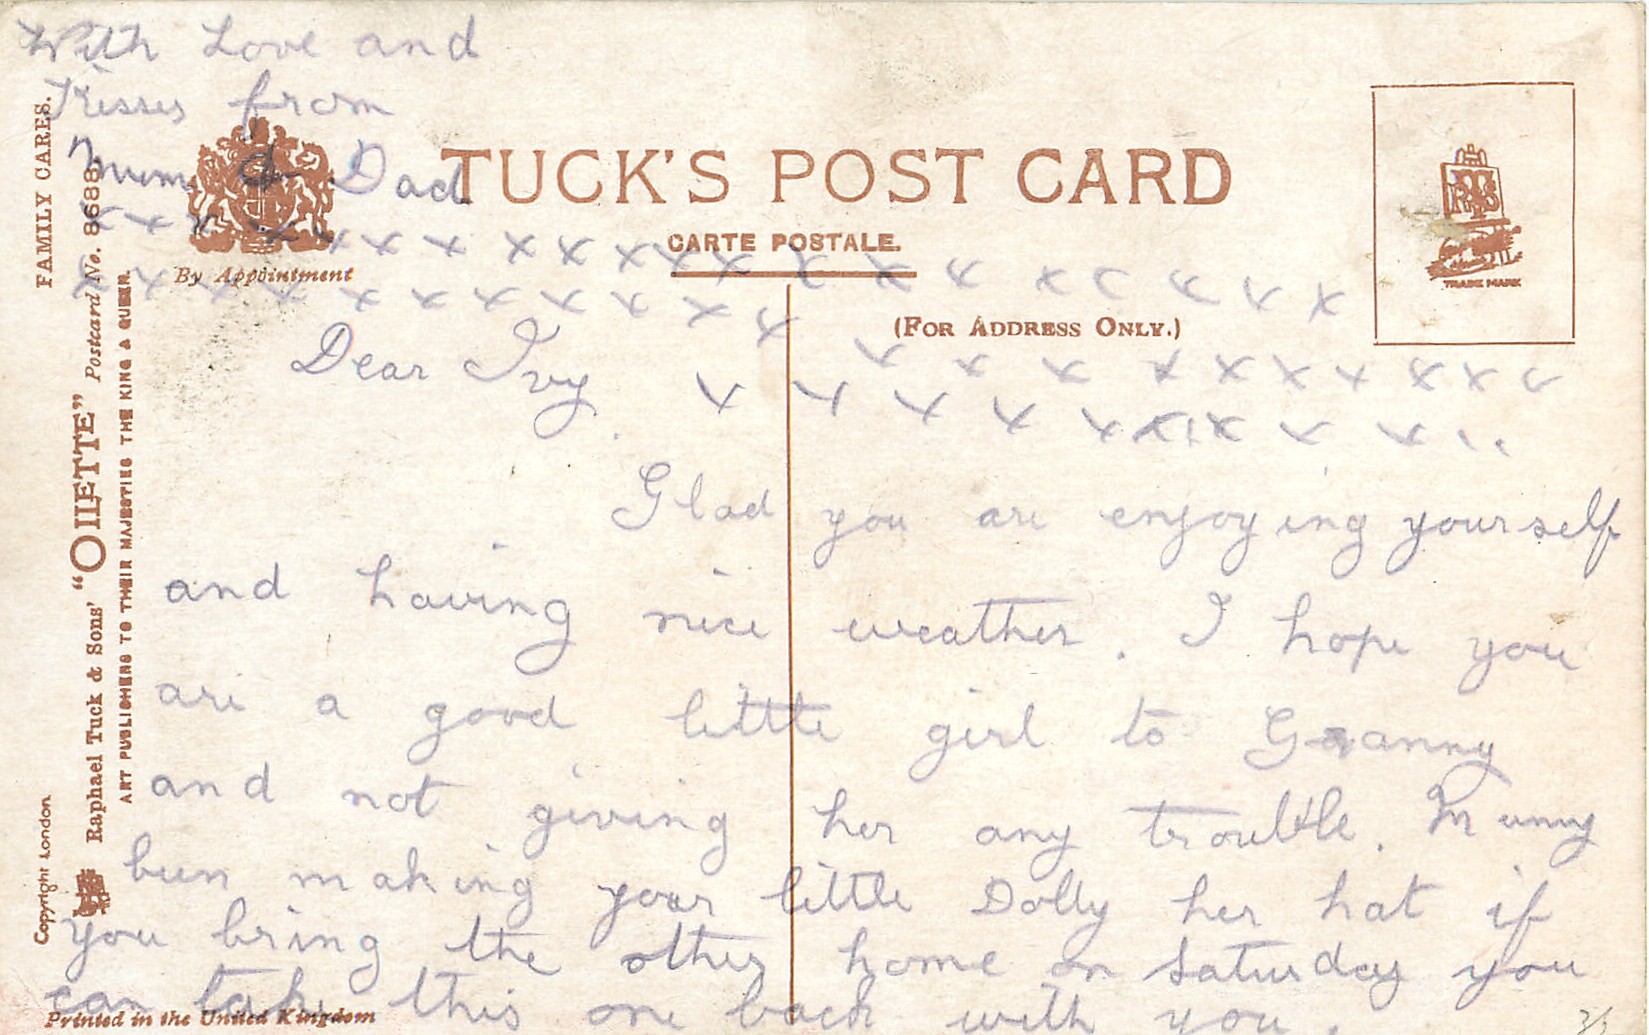 With Love and
Kisses from
Mum & Dad
TUCK'S POST CARD
CARTE POSTALE.
(FOR ADDRESS ONLY.)
By Appointment
TRADE MARK
x x x x x x x x x x x x x x x x x x x x x
x x x x x x x x x x x
x x x x x x x x x x
x x x x x x x x x x
Dear Ivy
Glad you are enjoying yourself
and having nice weather. I hope you
are a good little girl to Granny
and not giving her any trouble. Mumy
been making your little Dolly her hat if
you bring the other home on Saturday you
can take this one back with you.
FAMILY CARES.
Raphael Tuck & Sons' "OILETTE" Postcard No. 8688.
ART PUBLISHERS TO THEIR MAJESTIES THE KING & QUEEN.
Copyright London
Printed in the United Kingdom